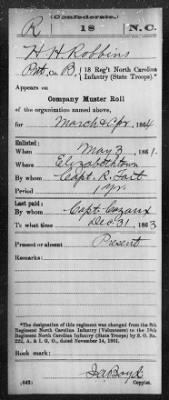 (Confederate.)
R 18 N.C.
H H Robbins
Pvt, Co. B, 18 Reg't North Carolina
Infantry (State Troops).*
Appears on
Company Muster Roll
of the organization named above,
for March & Apr, 1864
Enlisted:
When May 3, 1861.
Where Elizabethtown
By whom Capt. R. Tait
Period 1 yr.
Last paid:
By whom Capt. Cazaux
To what time Dec 31, 1863
Present or absent Present
Remarks:
*The designation of this regiment was changed from the 8th
Regiment North Carolina Infantry (Volunteers) to the 18th
Regiment North Carolina Infantry (State Troops) by S. O. No.
222, A. & I. G. O., dated November 14, 1861.
Book mark:
(642)
Boyd
Copyist.